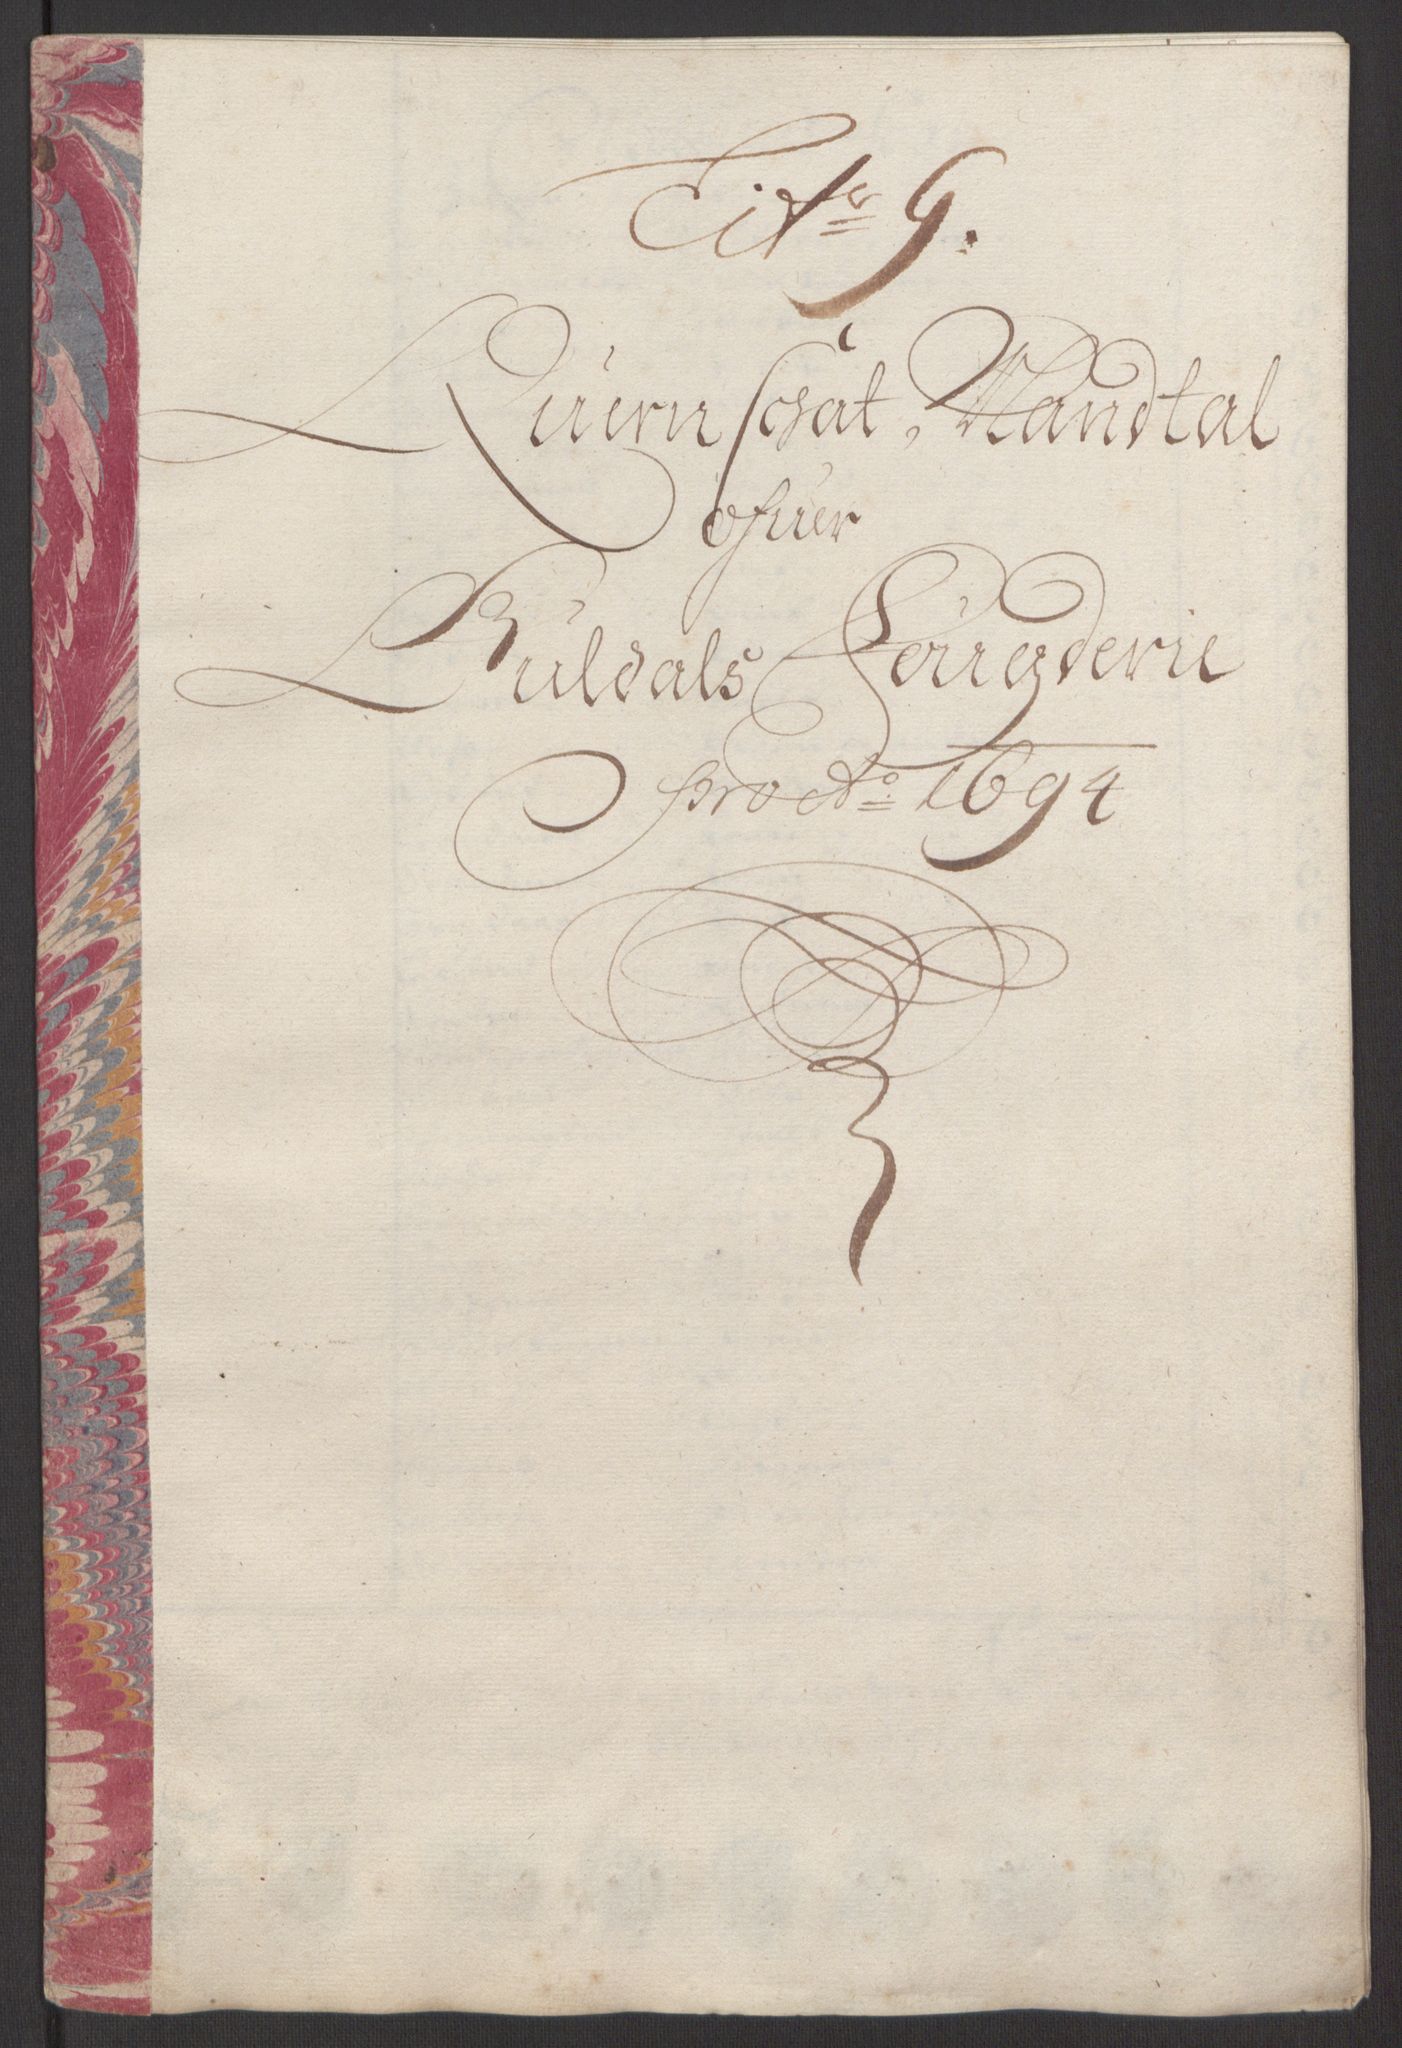 Litr G.
Quern schat Mandtal
ofuer
Guldals Fougderie
pro Ao 1694